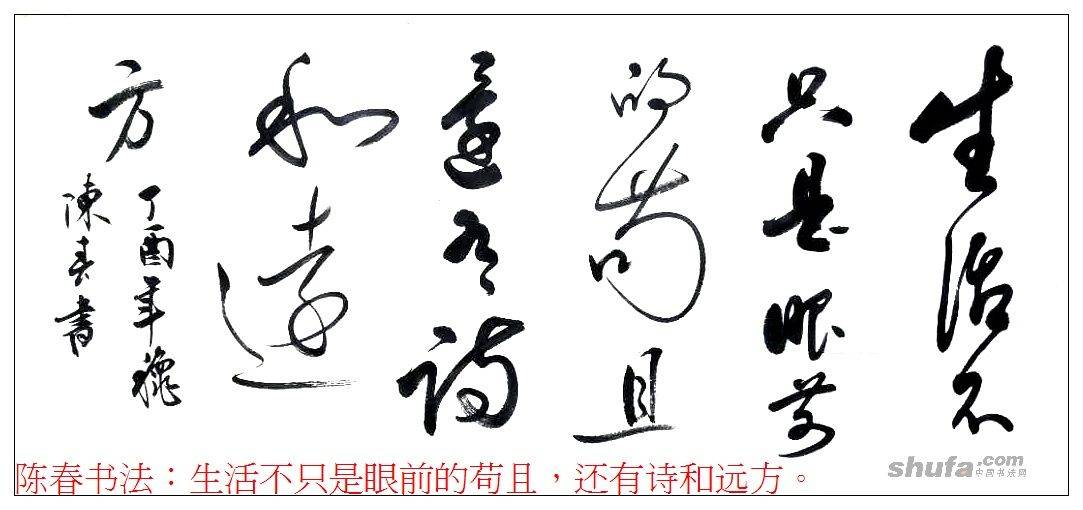 生活不
只是眼前
的苟且
還有詩
和遠
方
丁酉年秋
陳春書
陈春书法：生活不只是眼前的苟且，还有诗和远方。
shufa.com
中国书法网